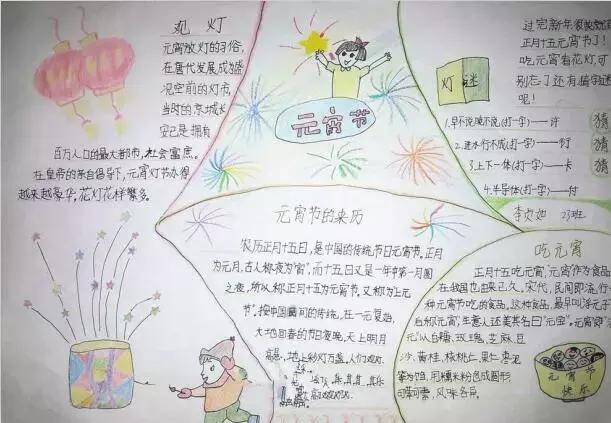 灯
元宵放灯的习俗,
在唐代发展成为盛
况空前的灯市,
当时的京城长
安已是拥有
百万人口的最大都市,社会富庶。
在皇帝的亲自倡导下,元宵灯节办得
越来越豪华。花灯花样繁多。
元宵节
过完新年很快就
正月十五元宵节了!
吃元宵看花灯,可
别忘了还有猜字谜
呢!
灯谜
1.早不说晚不说(打一字)——许 猜
2. (打一字)——
3.上下一体(打一字)——卡 猜
4.半导体(打一字)——付
23班
元宵节的来历
农历正月十五日,是中国的传统节日元宵节。正月
为元月,古人称夜为"宵",而十五日又是一年中第一个月圆
之夜,所以称正月十五为元宵节。又称为上元
节"。按中国 的传统,在一元复始,
大地回春的节日夜晚,天上明月
高悬,地上彩灯万盏,人们观灯、
吃元宵
正月十五吃元宵,"元宵"作为食品,
在我国也由来已久。宋代,民间即流行一
种元宵节吃的食品。这种食品,最早叫浮元子
后称"元宵",生意人还美其名曰"元宝"。元宵即
元"以白糖、玫瑰、芝麻、豆
沙、黄桂、核桃仁、果仁、枣泥
等为馅,用糯米粉包成圆形
可荤可素,风味各异。
元宵节
快乐